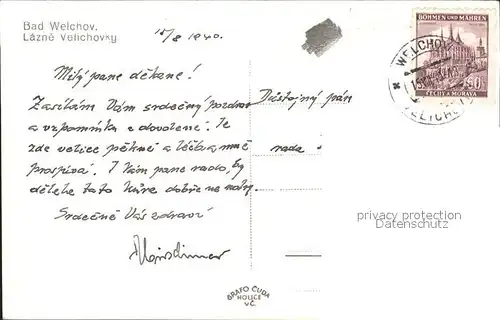 Bad Welchov.
Lázně Velichovky
15/8 1940.
BÖHMEN UND MÄHREN
ČECHY A MORAVA
WELCHOV
VELICHO
Milý pane děkane!
Zasílám Vám srdečný pozdrav
Důstojný pán
a vzpomínku z dovolené. Je
zde velice pěkné a léčba mně
rada
prospívá. I Vám pane rado, by
dělala tato kúra dobře na nohy.
Srdečně Vás zdraví
privacy protection
Datenschutz
GRAFO ČUDA
HOLICE
v Č.